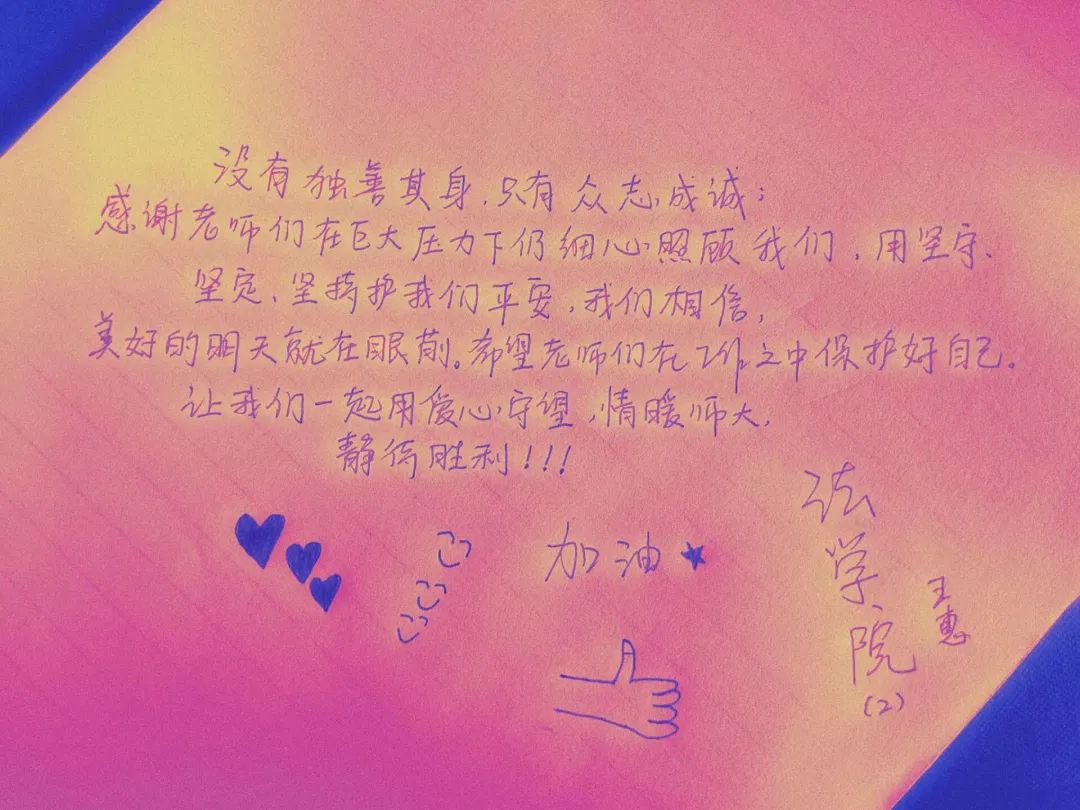 没有独善其身，只有众志成诚；
感谢老师们在巨大压力下仍细心照顾我们，用坚守、
坚定、坚持护我们平安，我们相信，
美好的明天就在眼前。希望老师们在工作之中保护好自己。
让我们一起用爱心守望，情暖师大，
静待胜利！！！
加油
法学院
(2)
王惠